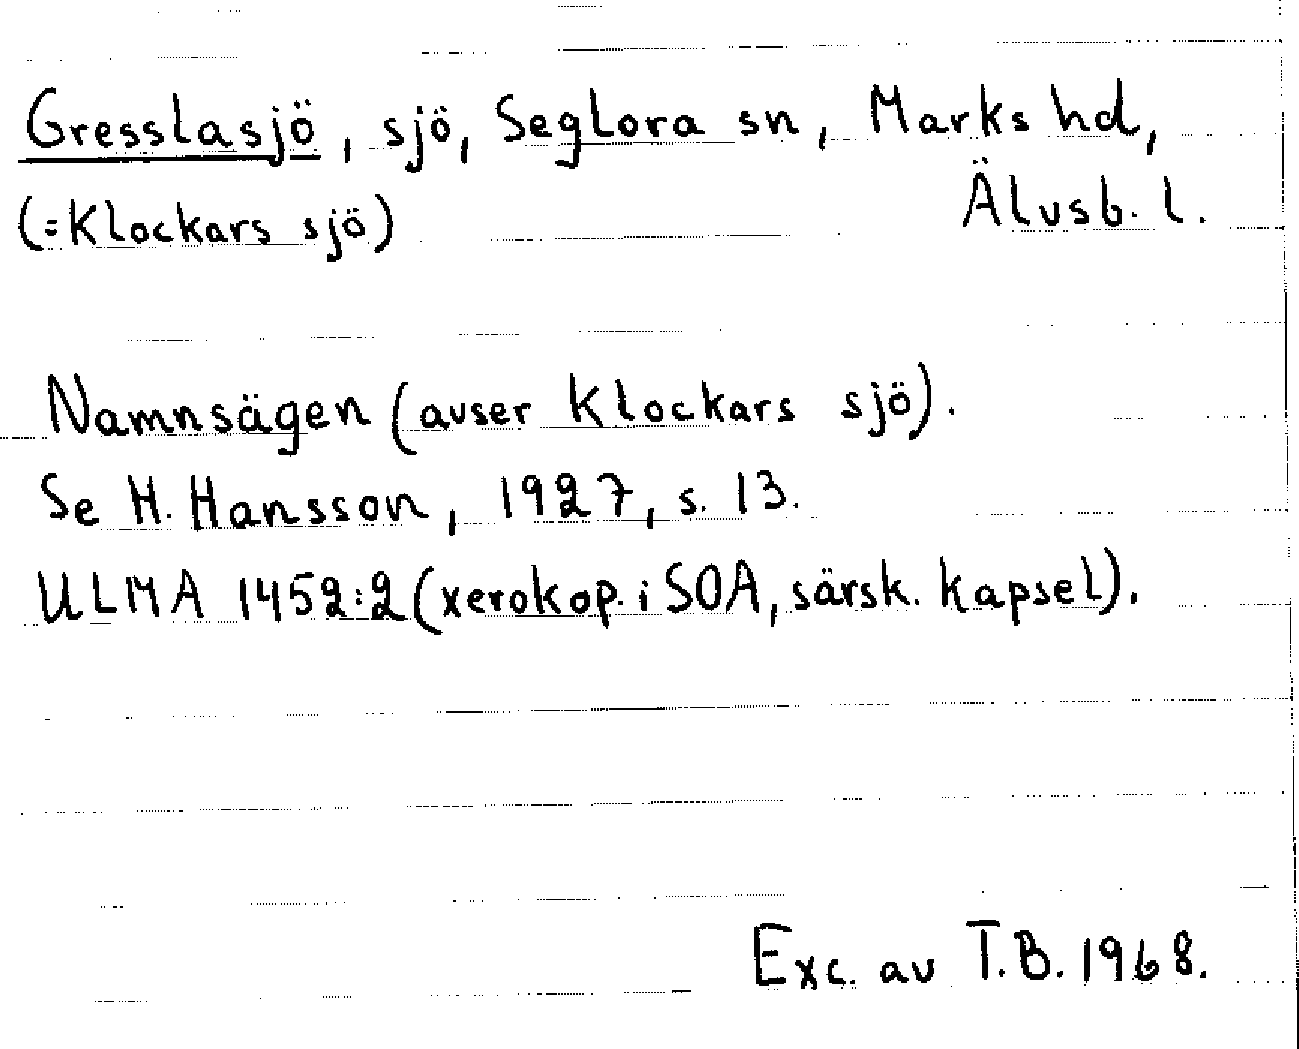 Gresslasjö, sjö, Seglora sn, Marks hd,
(=Klockars sjö) Älvsb. l.
Namnsägen (avser Klockars sjö).
Se H. Hansson, 1927, s. 13.
ULMA 1452:2 (xerokop. i SOA, särsk. kapsel).
Exc. av T.B. 1968.